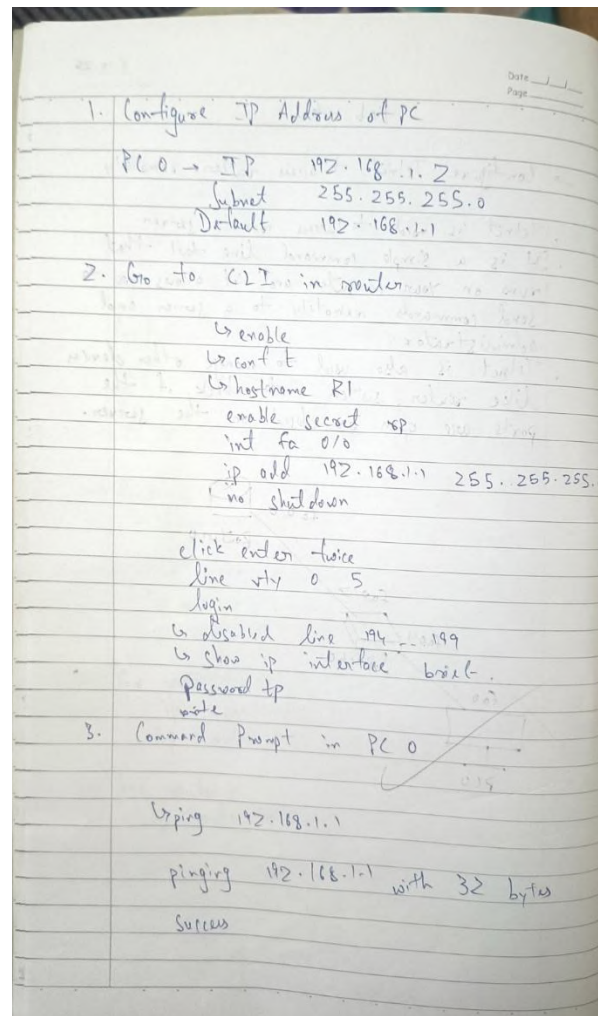 Date
Page
1. Configure IP Address of PC
PC 0 → IP 192.168.1.2
Subnet 255.255.255.0
Default 192.168.1.1
2. Go to CLI in router
↳ enable
↳ conf t
↳ hostname R1
enable secret rp
int fa 0/0
ip add 192.168.1.1 255.255.255.
no shutdown
click enter twice
line vty 0 5
login
↳ disabled line 194 -- 199
↳ show ip interface brief.
Password tp
3. Command Prompt in PC 0
↳ ping 192.168.1.1
pinging 192.168.1.1 with 32 bytes
Success